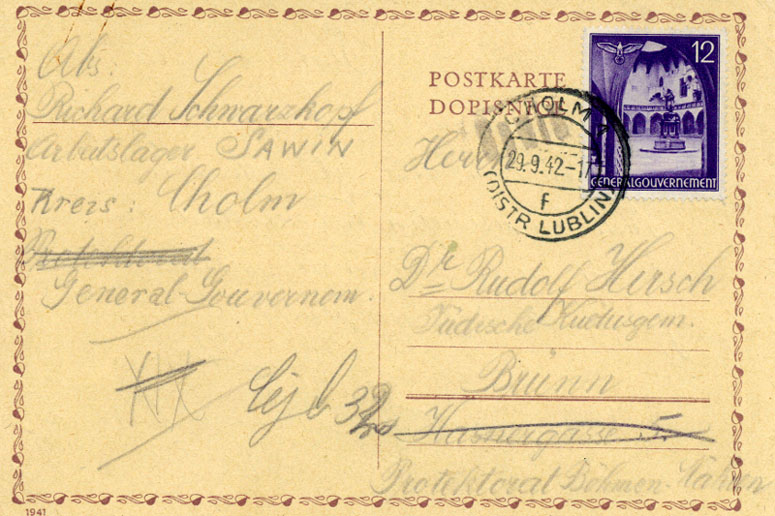 Abs:
Richard Schwarzkopf
Arbeitslager SAWIN
Kreis: Cholm
Protektorat
General-Gouvernem.
XIX
POSTKARTE
DOPISNICE
12
GENERALGOUVERNEMENT
CHOLM 1
29.9.42-17
f
(DISTR LUBLIN)
Herrn
Dr Rudolf Hirsch
Jüdische Kultusgem.
Brünn
5.
Protektorat Böhmen-Mähren
1941